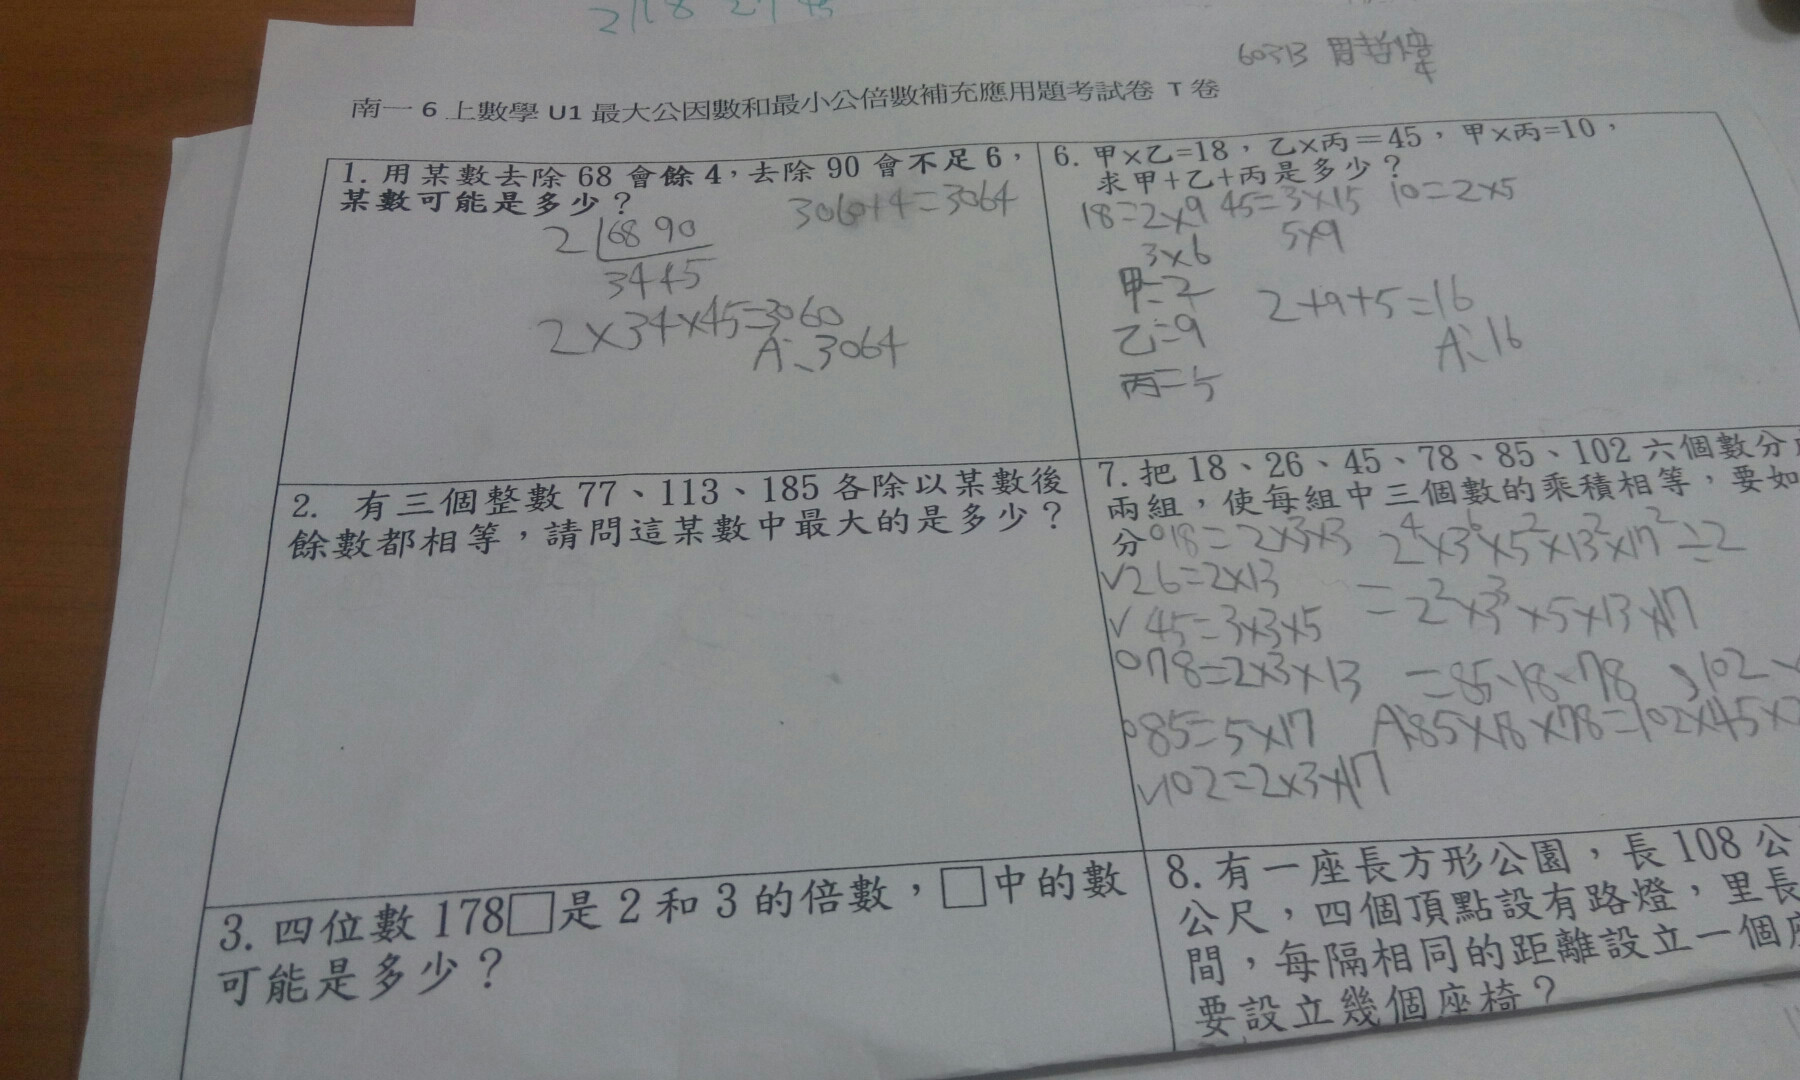 2 18 27 45
60313
南一 6 上數學 U1 最大公因數和最小公倍數補充應用題考試卷 T 卷
1. 用某數去除 68 會餘 4，去除 90 會不足 6，
某數可能是多少？
3060+4=3064
2 68 90
34 45
2×34×45=3060
A:、3064
2. 有三個整數 77、113、185 各除以某數後
餘數都相等，請問這某數中最大的是多少？
3. 四位數 178□是 2 和 3 的倍數，□中的數
可能是多少？
6. 甲×乙=18，乙×丙＝45，甲×丙=10，
求甲+乙+丙是多少？
18=2×9 45=3×15 10=2×5
3×6 5×9
甲=2
乙=9
丙=5
2+9+5=16
A、16
7. 把 18、26、45、78、85、102 六個數分
兩組，使每組中三個數的乘積相等，要如
分
18=2×3×3 2⁴×3⁶×5²×13²×17²÷2
√26=2×13 =2²×3³×5×13×17
√45=3×3×5
078=2×3×13 =85、18、78、102
085=5×17 A:85×18×78=102×45×2
√102=2×3×17
8. 有一座長方形公園，長 108 公
公尺，四個頂點設有路燈，里長
間，每隔相同的距離設立一個座
要設立幾個座椅？